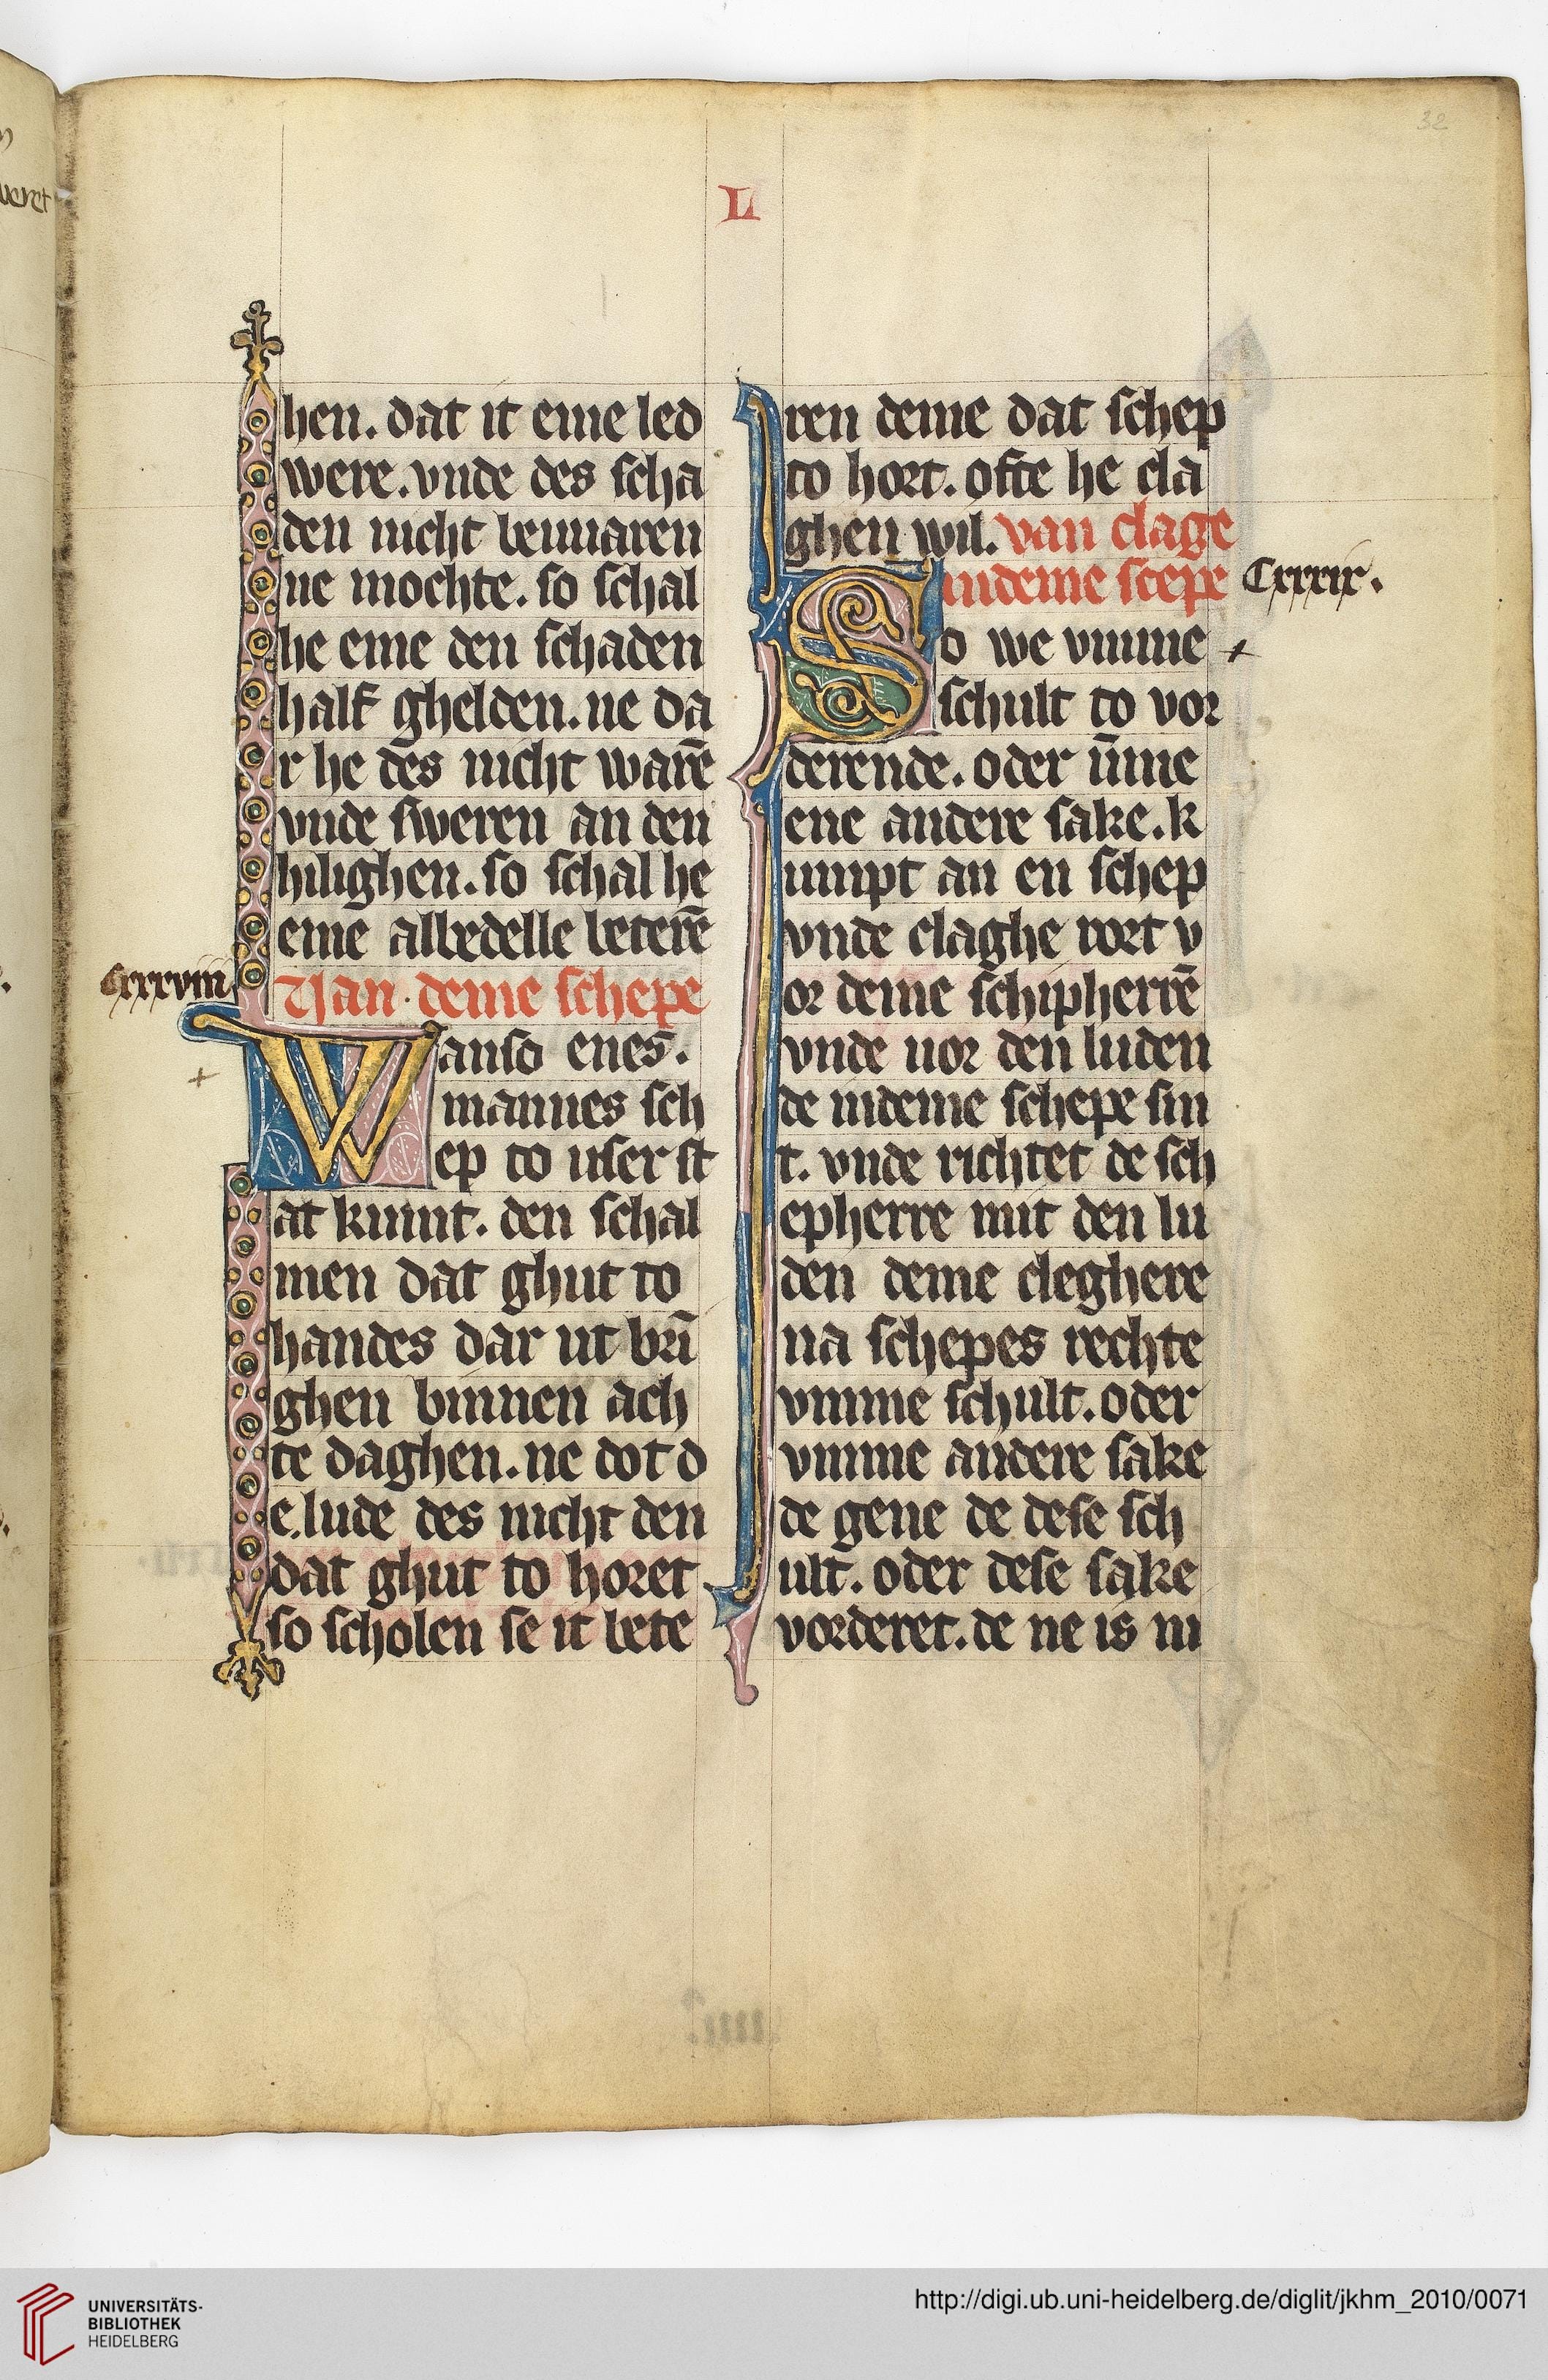 32
L
hen. dat it eme led
were. vnde des scha
den nicht bewaren
ne mochte. so schal
he eme den schaden
half ghelden. ne da
r he des nicht warē
vnde sweren an den
hilighen. so schal he
eme albedelle beterē
Van deme schepe
Cxxxviii
Wanso enes.
mannes sch
ep to user st
at kumt. den schal
men dat ghut to
handes dar ut brī
ghen binnen ach
te daghen. ne dot d
e lude des nicht den
dat ghut to horet.
so scholen se it bete
ren deme dat schep
to hort. ofte he cla
ghen wil. van clage
indeme scepe
Cxxxix.
So we vmme
schult to vor
derende. oder ūme
ene andere sake. k
umpt an en schep
vnde claghe vort v
or deme schipherrē
vnde uor den luden
de indeme schepe sin
t. vnde richtet de sch
epherre mit den lu
den deme cleghere
na schepes rechte
vmme schult. oder
vmme andere sake
de gene de dese sch
ult. oder dese sake
vorderet. de ne is ni
UNIVERSITÄTS-
BIBLIOTHEK
HEIDELBERG
http://digi.ub.uni-heidelberg.de/diglit/jkhm_2010/0071